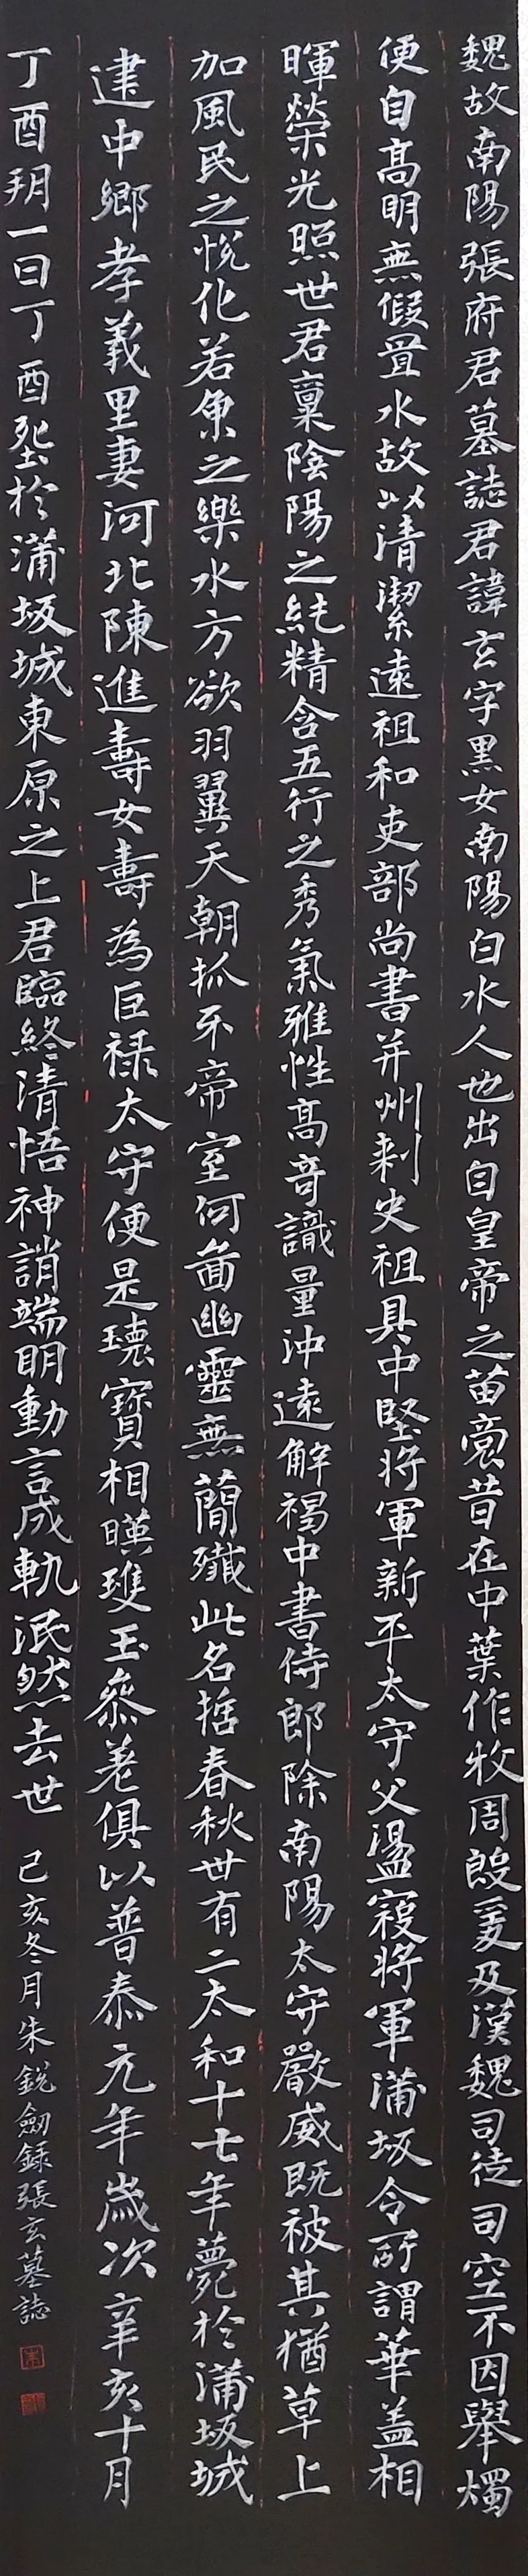 魏故南陽張府君墓誌君諱玄字黑女南陽白水人也出自皇帝之苗裔昔在中葉作牧周殷爰及漢魏司徒司空不因舉燭
便自高明無假置水故以清潔遠祖和吏部尚書并州刺史祖具中堅將軍新平太守父盪寇將軍蒲坂令所謂華蓋相
暉榮光照世君稟陰陽之純精含五行之秀氣雅性高奇識量沖遠解褐中書侍郎除南陽太守嚴威既被其猶草上
加風民之悅化若魚之樂水方欲羽翼天朝抓牙帝室何啚幽靈無簡殲此名悊春秋卅有二太和十七年薨於蒲坂城
建中鄉孝義里妻河北陳進壽女壽為巨祿太守便是瓌寶相暎瓊玉參差俱以普泰元年歲次辛亥十月
丁酉朔一日丁酉塟於蒲坂城東原之上君臨終清悟神誚端明動言成軌泯然去世 己亥冬月朱銳劍錄張玄墓誌